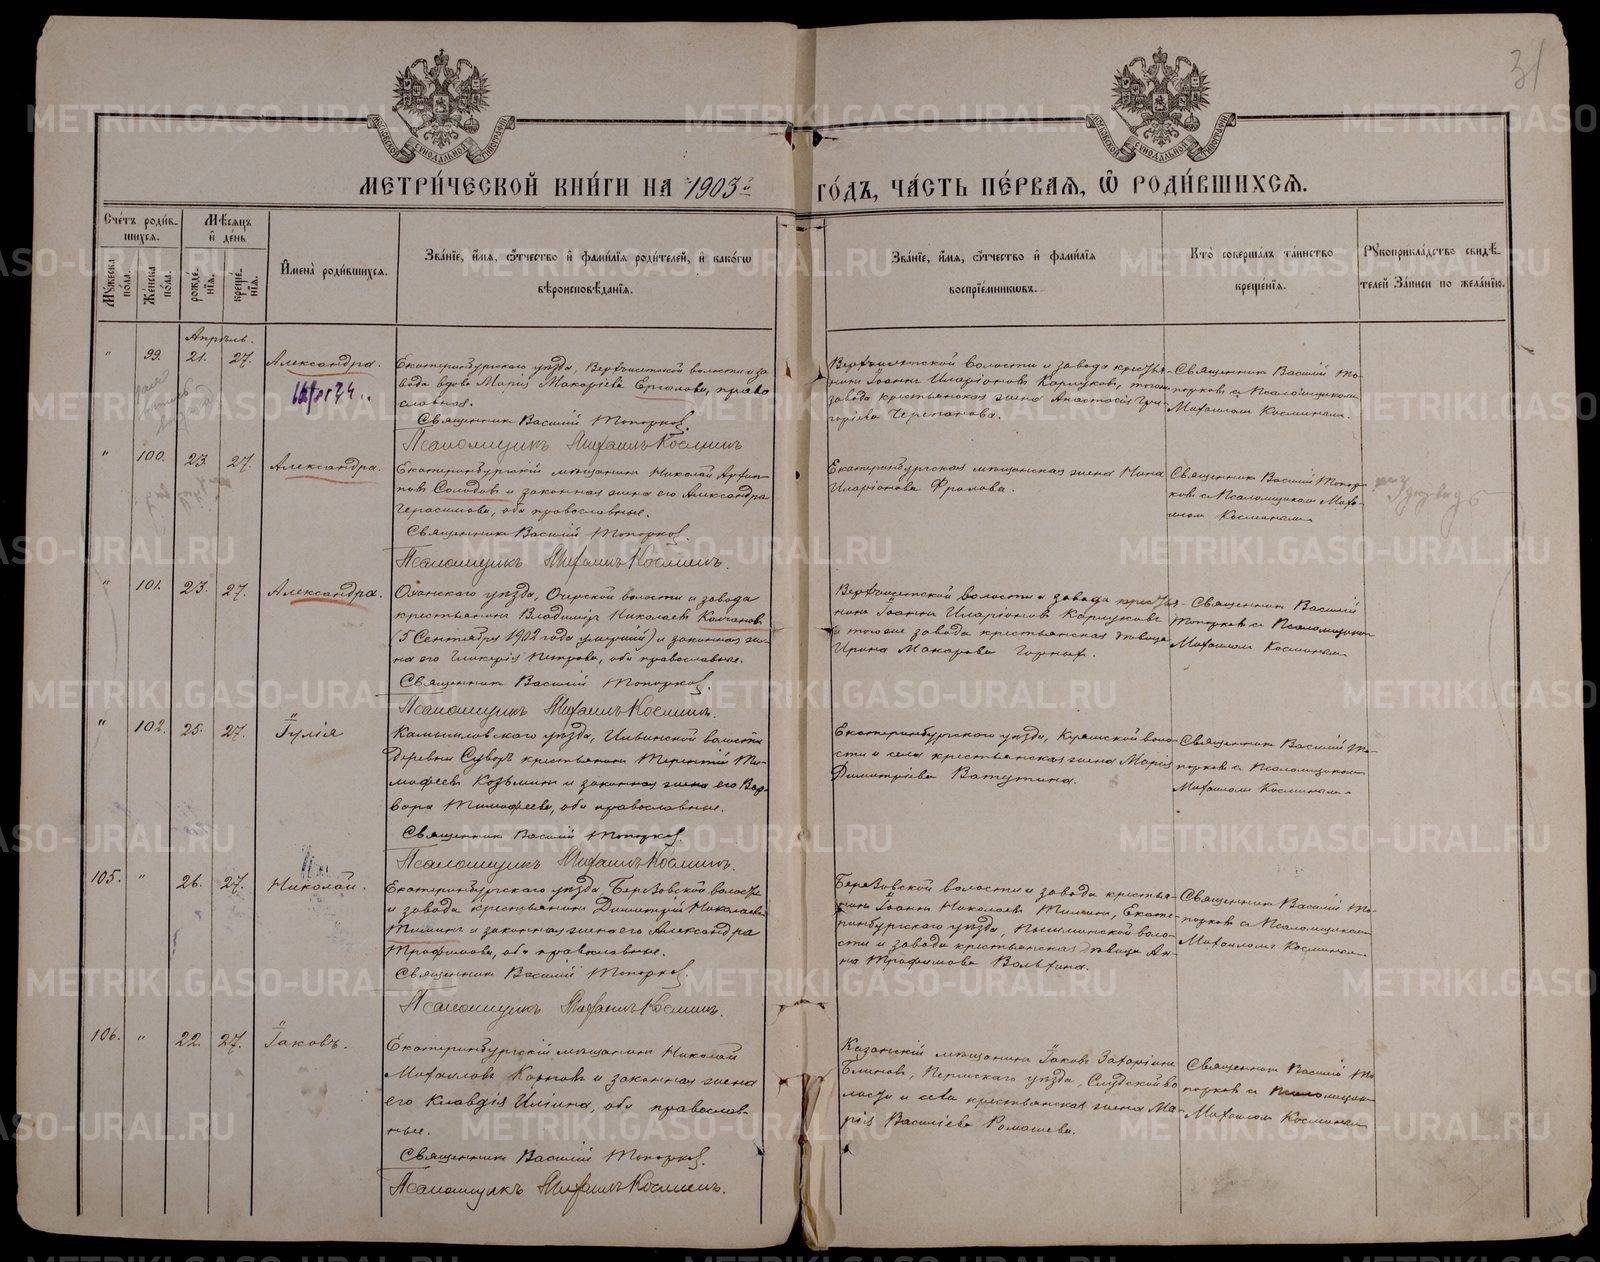 31
МЕТРИ́ЧЕСКОЙ КНИ́ГИ НА 1903й ГО́ДЪ, ЧА́СТЬ ПЕ́РВАЯ, Ѡ РОДИ́ВШИХСЯ.
Сче́тъ роди́в-
шихся.
Му́жеска по́ла.
Же́нска по́ла.
Мѣ́сяцъ
и҆ де́нь
рожде́-
нїя.
креще́-
нїя.
И҆мена̀ роди́вшихся.
Зва́нїе, и҆́мя, ѻ҆́тчество и҆ фами́лїя роди́телей, и҆ како́гѡ
вѣроисповѣ́данїя.
Зва́нїе, и҆́мя, ѻ҆́тчество и҆ фами́лїя
воспрїе́мникѡвъ.
Кто̀ соверша́лъ та́инство
креще́нїя.
Рꙋкоприкла́дство свидѣ́-
телей за́писи по жела́нїю.
Апрѣль.
" 99. 21. 27. Александра.
Екатеринбургскаго уѣзда, Верхъисетской волости и за-
вода вдова Марія Макаріева Ергалова, право-
славная.
Священникъ Василій Топорковъ.
Псаломщикъ Михаилъ Космынъ
Верхъисетской волости и завода крестья-
нинъ Іоаннъ Иларіоновъ Кармуковъ, того же
завода крестьянская жена Анастасія Гри-
горіева Черепанова.
Священникъ Василій То-
порковъ съ Псаломщикомъ
Михаиломъ Косминымъ.
" 100. 23. 27. Александра.
Екатеринбургскій мѣщанинъ Николай Архип-
повъ Солодовъ и законная жена его Александра
Герасимова, оба православные.
Священникъ Василій Топорковъ.
Псаломщикъ Михаилъ Косминъ.
Екатеринбургская мѣщанская жена Нина
Иларіонова Фролова.
Священникъ Василій Топор-
ковъ съ Псаломщикомъ Миха-
иломъ Косминымъ
" 101. 23. 27. Александра.
Оханскаго уѣзда, Очерской волости и завода
крестьянинъ Владиміръ Николаевъ Колчановъ
(5 Сентября 1902 года умершій) и законная же-
на его Гликерія Петрова, оба православные.
Священникъ Василій Топорковъ.
Псаломщикъ Михаилъ Косминъ.
Верхъисетской волости и завода крестья-
нинъ Іоаннъ Иларіоновъ Кармуковъ
и того же завода крестьянская дѣвица
Ирина Макарова Горныхъ.
Священникъ Василій
Топорковъ съ Псаломщикомъ
Михаиломъ Косминымъ
" 102. 25. 27. Іулія
Камышловскаго уѣзда, Ильинской волости
деревни Суворъ крестьянинъ Терентій Ти-
мофеевъ Козьминъ и законная жена его Вар-
вара Тимофеева, оба православные.
Священникъ Василій Топорковъ.
Псаломщикъ Михаилъ Косминъ.
Екатеринбургскаго уѣзда, волос-
сти и села крестьянская жена Марія
Димитріева Ватутина.
Священникъ Василій То-
порковъ съ Псаломщикомъ
Михаиломъ Косминымъ
105. " 26. 27. Николай.
Екатеринбургскаго уѣзда, Березовской волости
и завода крестьянинъ Димитрій Николаевъ
Тиминъ и законная жена его Александра
Трофимова, оба православные.
Священникъ Василій Топорковъ.
Псаломщикъ Михаилъ Косминъ.
Березовской волости и завода крестья-
нинъ Іоаннъ Николаевъ Тиминъ, Екате-
ринбургскаго уѣзда, Пышминской воло-
сти и завода крестьянская дѣвица Ан-
на Трофимова Вольхина.
Священникъ Василій То-
порковъ съ Псаломщикомъ
Михаиломъ Косминымъ
106. " 22. 27. Іаковъ.
Екатеринбургскій мѣщанинъ Николай
Михаиловъ Карповъ и законная жена
его Клавдія Иліина, оба православ-
ные.
Священникъ Василій Топорковъ.
Псаломщикъ Михаилъ Косминъ.
Казанскій мѣщанинъ Іаковъ Захаріинъ
Блиновъ, Пермскаго уѣзда, Слудской во-
лости и села крестьянская жена Ма-
рія Василіева Ромашева.
Священникъ Василій То-
порковъ съ Псаломщикомъ
Михаиломъ Косминымъ
METRIKI.GASO-URAL.RU